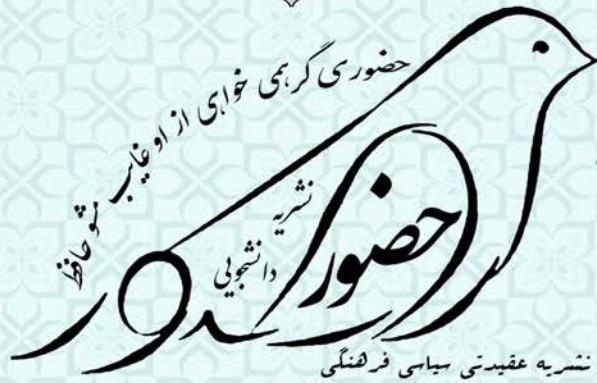 حضوری گر همی خواهی از او غایب مشو حافظ
نشریه
دانشجویی
حضور
نشریه عقیدتی سیاسی فرهنگی